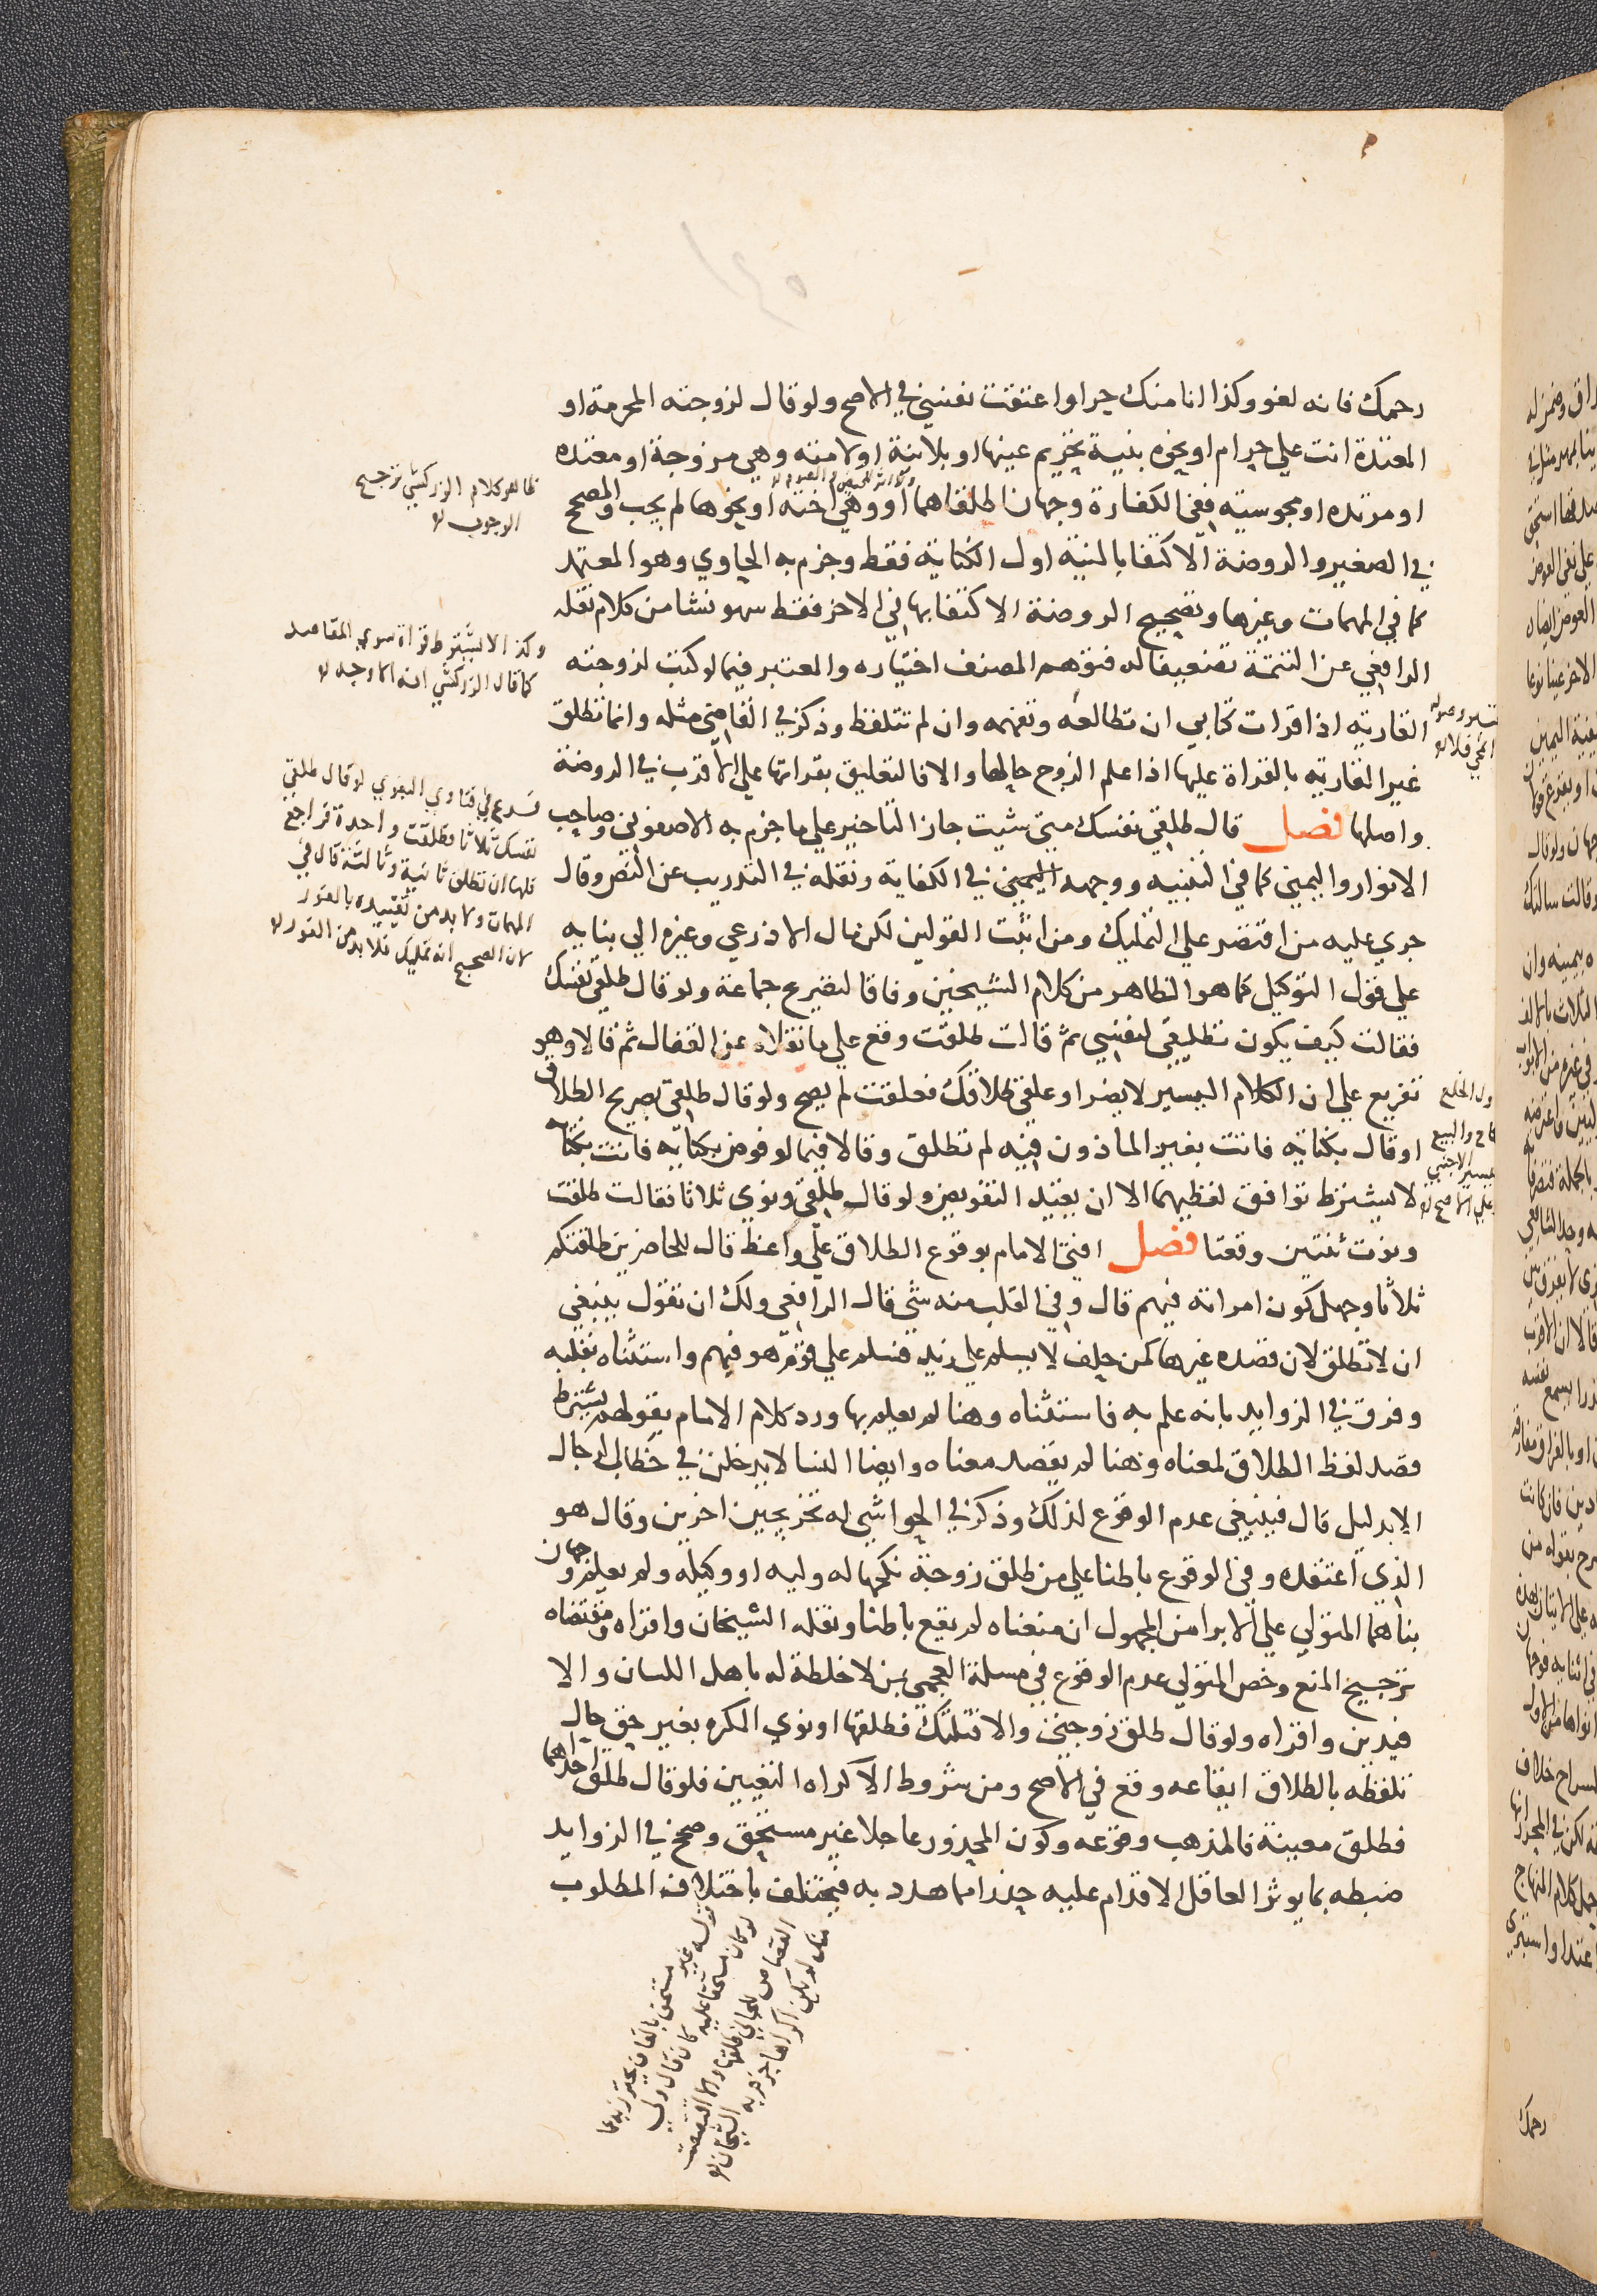 رحمك فانه لغو وكذا انا منك حر او اعتقت نفسي في الاصح ولو قال لزوجته المحرمة او
المعتدة انت علي حرام او نحوه بنية تحريم عينها او بلا نية او لامته وهي مزوجة او معتده
او مرتده او مجوسيته ففي الكفارة وجهان اطلقاهما او وهي اخته او نحوها لم يجب والمصحح
في الصغير والروضة الاكتفا بالنية اول الكناية فقط وجزم به الحاوي وهو المعتمد
كما في المهمات وغيرها وتصحيح الروضة الاكتفا بها في الاخر فقط سهو نشا من كلام نقله
الرافعي عن التتمة تضعيفا له فتوهم المصنف اختياره والمعتبر فيما لو كتب لزوجته
القاريه اذا قرات كتابي ان تطالعه وتفهمه وان لم تتلفظ وذكر في القاضي مثله وانما تطلق
غير القاريه بالقراة عليها اذا علم الزوج حالها والا فالتعليق بقراتها علي الاقرب في الروضة
واصلها فصل قال طلقي نفسك متي شيت جاز التاخير علي ما جزم به الاصفوني وصاحب
الانوار واليمين كما في التنبيه ووجهه اليمين في الكفاية ونقله في التدريب عن النص وقال
جري عليه من اقتصر علي التمليك ومن اثبت القولين لكن مال الاذرعي وغيره الي بنايه
علي قول التوكيل كما هو الظاهر من كلام الشيخين وفاقا لتصريح جماعة ولو قال طلقي نفسك
فقالت كيف يكون تطليقي لنفسي ثم قالت طلقت وقع علي ما نقلاه عن القفال ثم قالا وهو
تفريع علي ان الكلام اليسير لا يضر او علقي طلاقك فعلقت لم يصح ولو قال طلقي بصريح الطلاق
او قال بكنايه فاتت بغير الماذون فيه لم تطلق وقالا فيما لو فوض بكنايه فاتت بكنايه
لا يشترط توافق لفظيهما الا ان يقيد التفويض ولو قال طلقي ونوي ثلاثا فقالت طلقت
ونوت ثنتين وقعتا فصل افتي الامام بوقوع الطلاق علي واعظ قال للحاضرين طلقتكم
ثلاثا وجهل كون امراته فيهم قال وفي القلب منه شي قال الرافعي ولك ان تقول ينبغي
ان لا تطلق لان قصده غيرها كمن حلف لا يسلم علي زيد فسلم علي قوم هو فيهم واستثناه بقلبه
وفرق في الزوايد بانه علم به فاستثناه وهنا لم يعلم بها ورد كلام الامام بقولهم يشترط
قصد لفظ الطلاق لمعناه وهنا لم يقصد معناه وايضا النسا لا يدخلن في خطاب الرجال
الا بدليل قال فينبغي عدم الوقوع لذلك وذكر في الحواشي له تخريجين اخرين وقال هو
الذي اعتقده وفي الوقوع باطنا علي من طلق زوجة نكحها له وليه او وكيله ولم يعلم وجهان
بناهما المتولي علي الابرا من المجهول ان منعناه لم يقع باطنا ونقله الشيخان واقراه ومقتضاه
ترجيح المنع وخص المتولي عدم الوقوع في مسلة العجمي بمن لا خلطة له باهل اللسان والا
فيدين واقراه ولو قال طلق زوجتي والا قتلتك فطلقها او نوي المكره بغير حق حال
تلفظه بالطلاق ايقاعه وقع في الاصح ومن شروط الاكراه التعيين فلو قال طلق احداهما
فطلق معينة فالمذهب وقوعه وكون المحذور عاجلا غير مستحق وصحح في الزوايد
ضبطه بما يوثر العاقل الاقدام عليه حذرا مما هدد به فيختلف باختلاف المطلوب
ظاهر كلام الزركشي ترجيح
الوجوب
وكذا لا يشترط قراة سوي المقاصد
كما قال الزركشي انه الاوجه
فرع في فتاوي البغوي لو قال طلقي
نفسك ثلاثا فطلقت واحدة فراجع
فلها ان تطلق ثانية وثالثة قال في
المهمات ولا بد من تقييده بالفور
لان الصحيح انه تمليك فلا بد من الفور
قوله غير مستحق بالقاف يحترز به عما
لو كان مستحقا عليه كان قال ولي
القصاص للجاني طلقها والا اقتصصت
منك لم يكن اكراها جزم به الشيخان
رحمك